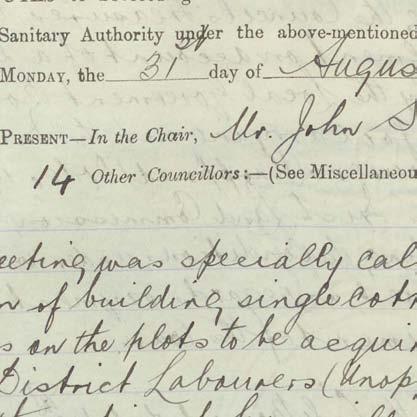 Sanitary Authority under the above-mentioned
MONDAY, the 31st day of Augus
PRESENT—In the Chair, Mr. John S
14 Other Councillors:—(See Miscellaneou
eeting was specially cal
n of building single cott
s on the plots to be acqui
District Labourers (Unop